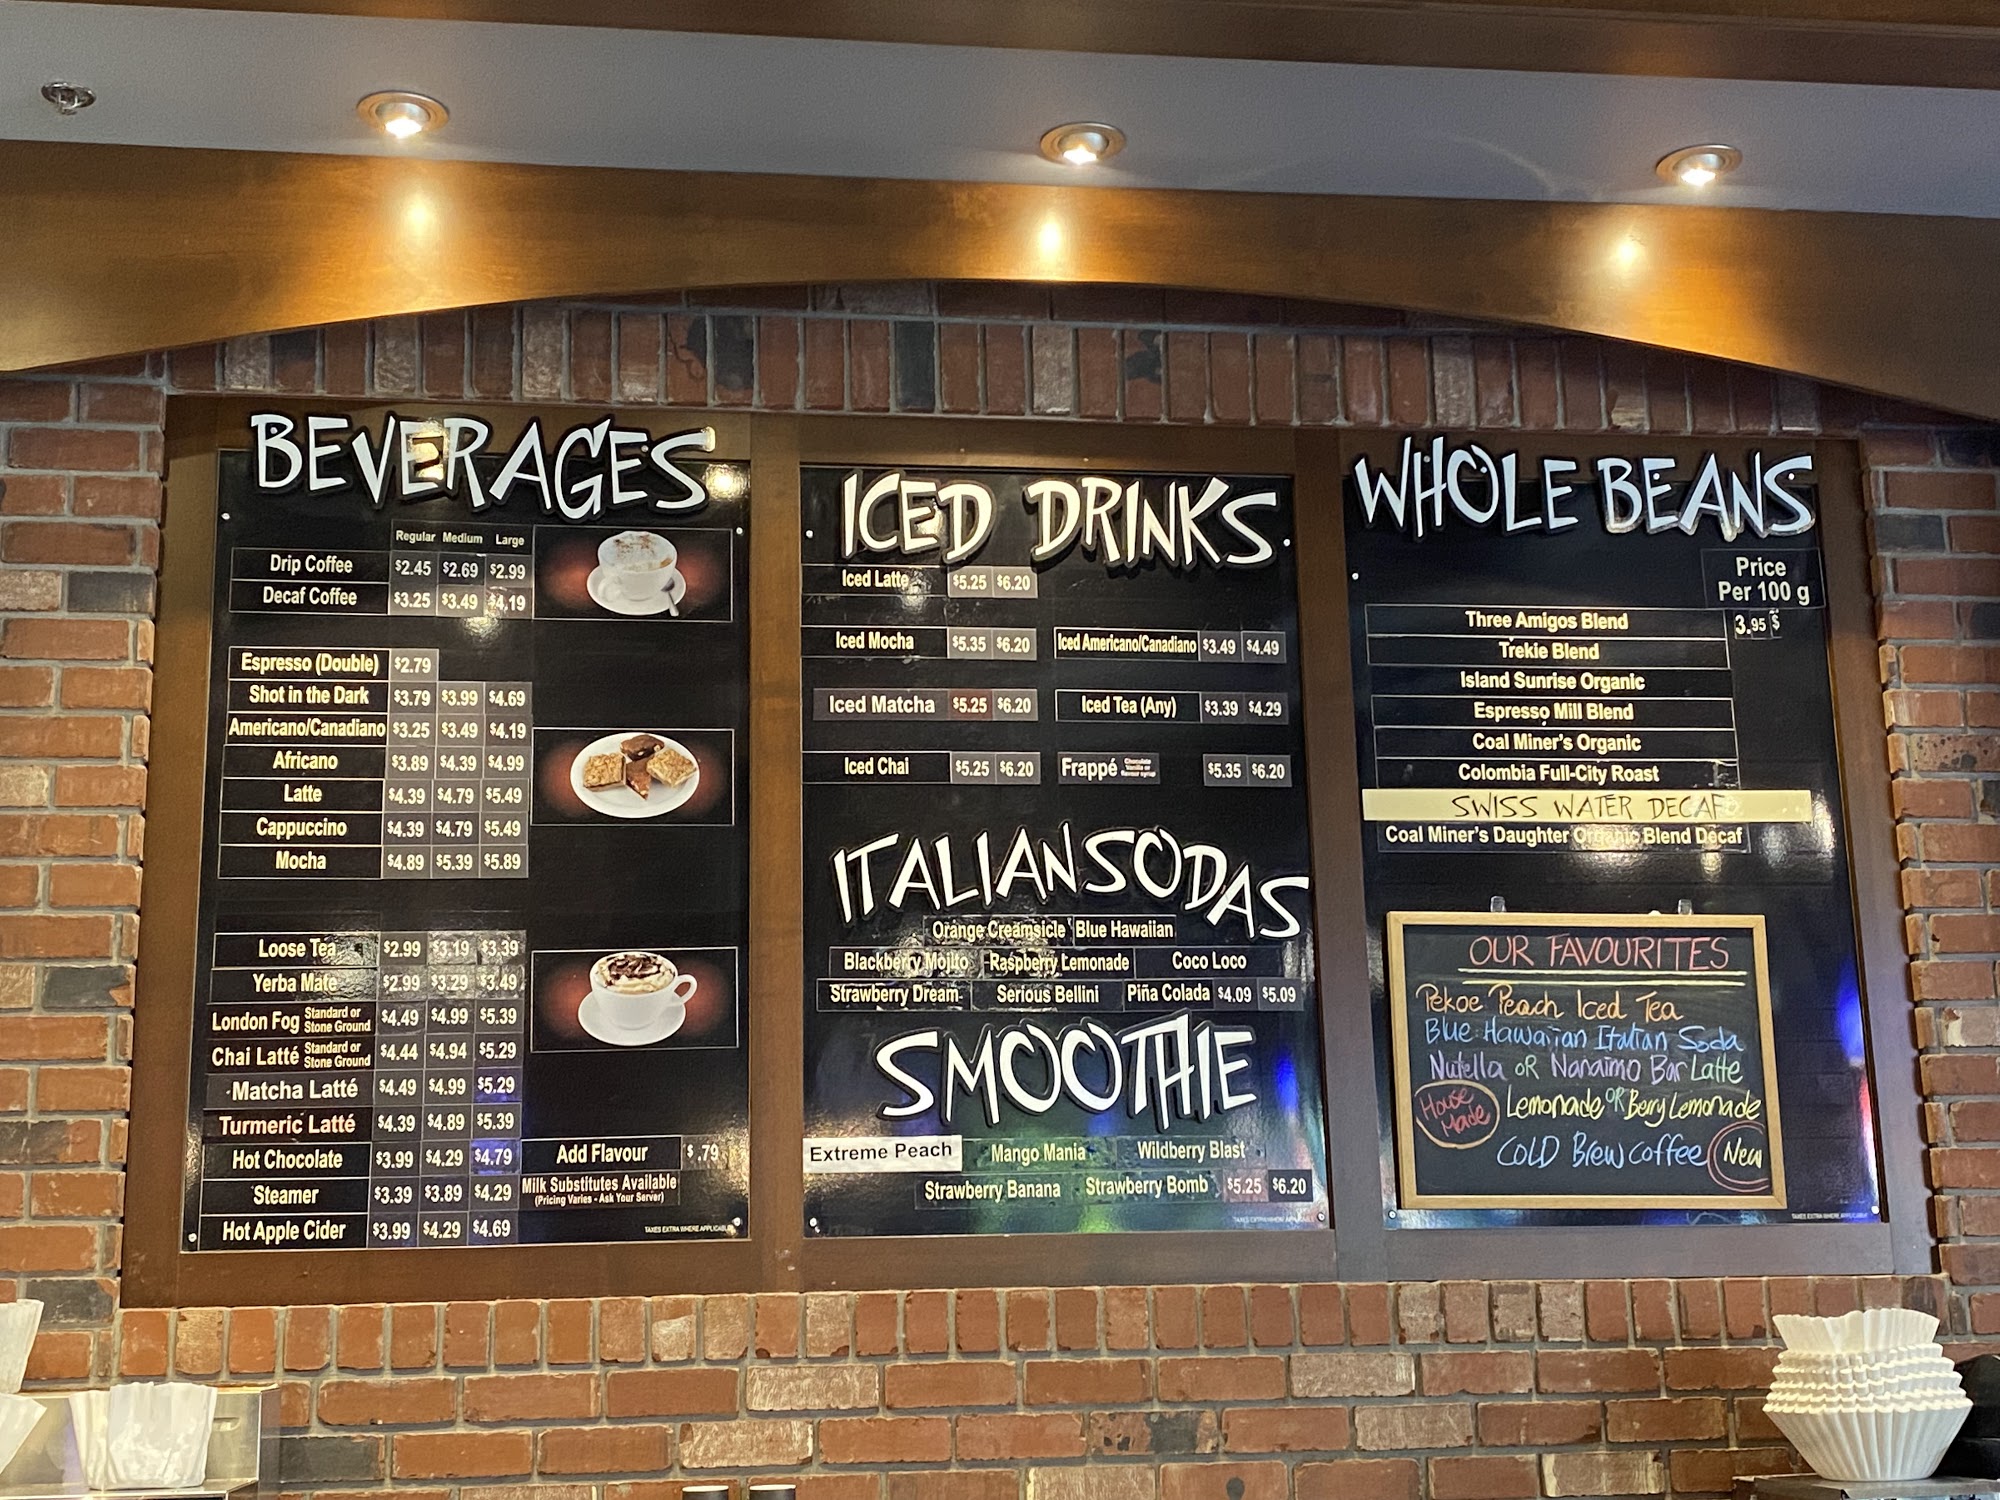 BEVERAGES
Regular Medium Large
Drip Coffee $2.45 $2.69 $2.99
Decaf Coffee $3.25 $3.49 $4.19
Espresso (Double) $2.79
Shot in the Dark $3.79 $3.99 $4.69
Americano/Canadiano $3.25 $3.49 $4.19
Africano $3.89 $4.39 $4.99
Latte $4.39 $4.79 $5.49
Cappuccino $4.39 $4.79 $5.49
Mocha $4.89 $5.39 $5.89
Loose Tea $2.99 $3.19 $3.39
Yerba Mate $2.99 $3.29 $3.49
London Fog Standard or Stone Ground $4.49 $4.99 $5.39
Chai Latté Standard or Stone Ground $4.44 $4.94 $5.29
Matcha Latté $4.49 $4.99 $5.29
Turmeric Latté $4.39 $4.89 $5.39
Hot Chocolate $3.99 $4.29 $4.79
Steamer $3.39 $3.89 $4.29
Hot Apple Cider $3.99 $4.29 $4.69
Add Flavour $.79
Milk Substitutes Available
(Pricing Varies - Ask Your Server)
TAXES EXTRA WHERE APPLICABLE
ICED DRINKS
Iced Latte $5.25 $6.20
Iced Mocha $5.35 $6.20 Iced Americano/Canadiano $3.49 $4.49
Iced Matcha $5.25 $6.20 Iced Tea (Any) $3.39 $4.29
Iced Chai $5.25 $6.20 Frappé Chocolate Vanilla or flavour syrup $5.35 $6.20
ITALIAN SODAS
Orange Creamsicle Blue Hawaiian
Blackberry Mojito Raspberry Lemonade Coco Loco
Strawberry Dream Serious Bellini Piña Colada $4.09 $5.09
SMOOTHIE
Extreme Peach Mango Mania Wildberry Blast
Strawberry Banana Strawberry Bomb $5.25 $6.20
TAXES EXTRA WHERE APPLICABLE
WHOLE BEANS
Price
Per 100 g
Three Amigos Blend 3.95 $
Trekie Blend
Island Sunrise Organic
Espresso Mill Blend
Coal Miner's Organic
Colombia Full-City Roast
SWISS WATER DECAF
Coal Miner's Daughter Organic Blend Decaf
OUR FAVOURITES
Pekoe Peach Iced Tea
Blue Hawaiian Italian Soda
Nutella OR Nanaimo Bar Latte
House Made Lemonade OR Berry Lemonade
COLD Brew coffee New
TAXES EXTRA WHERE APPLICABLE